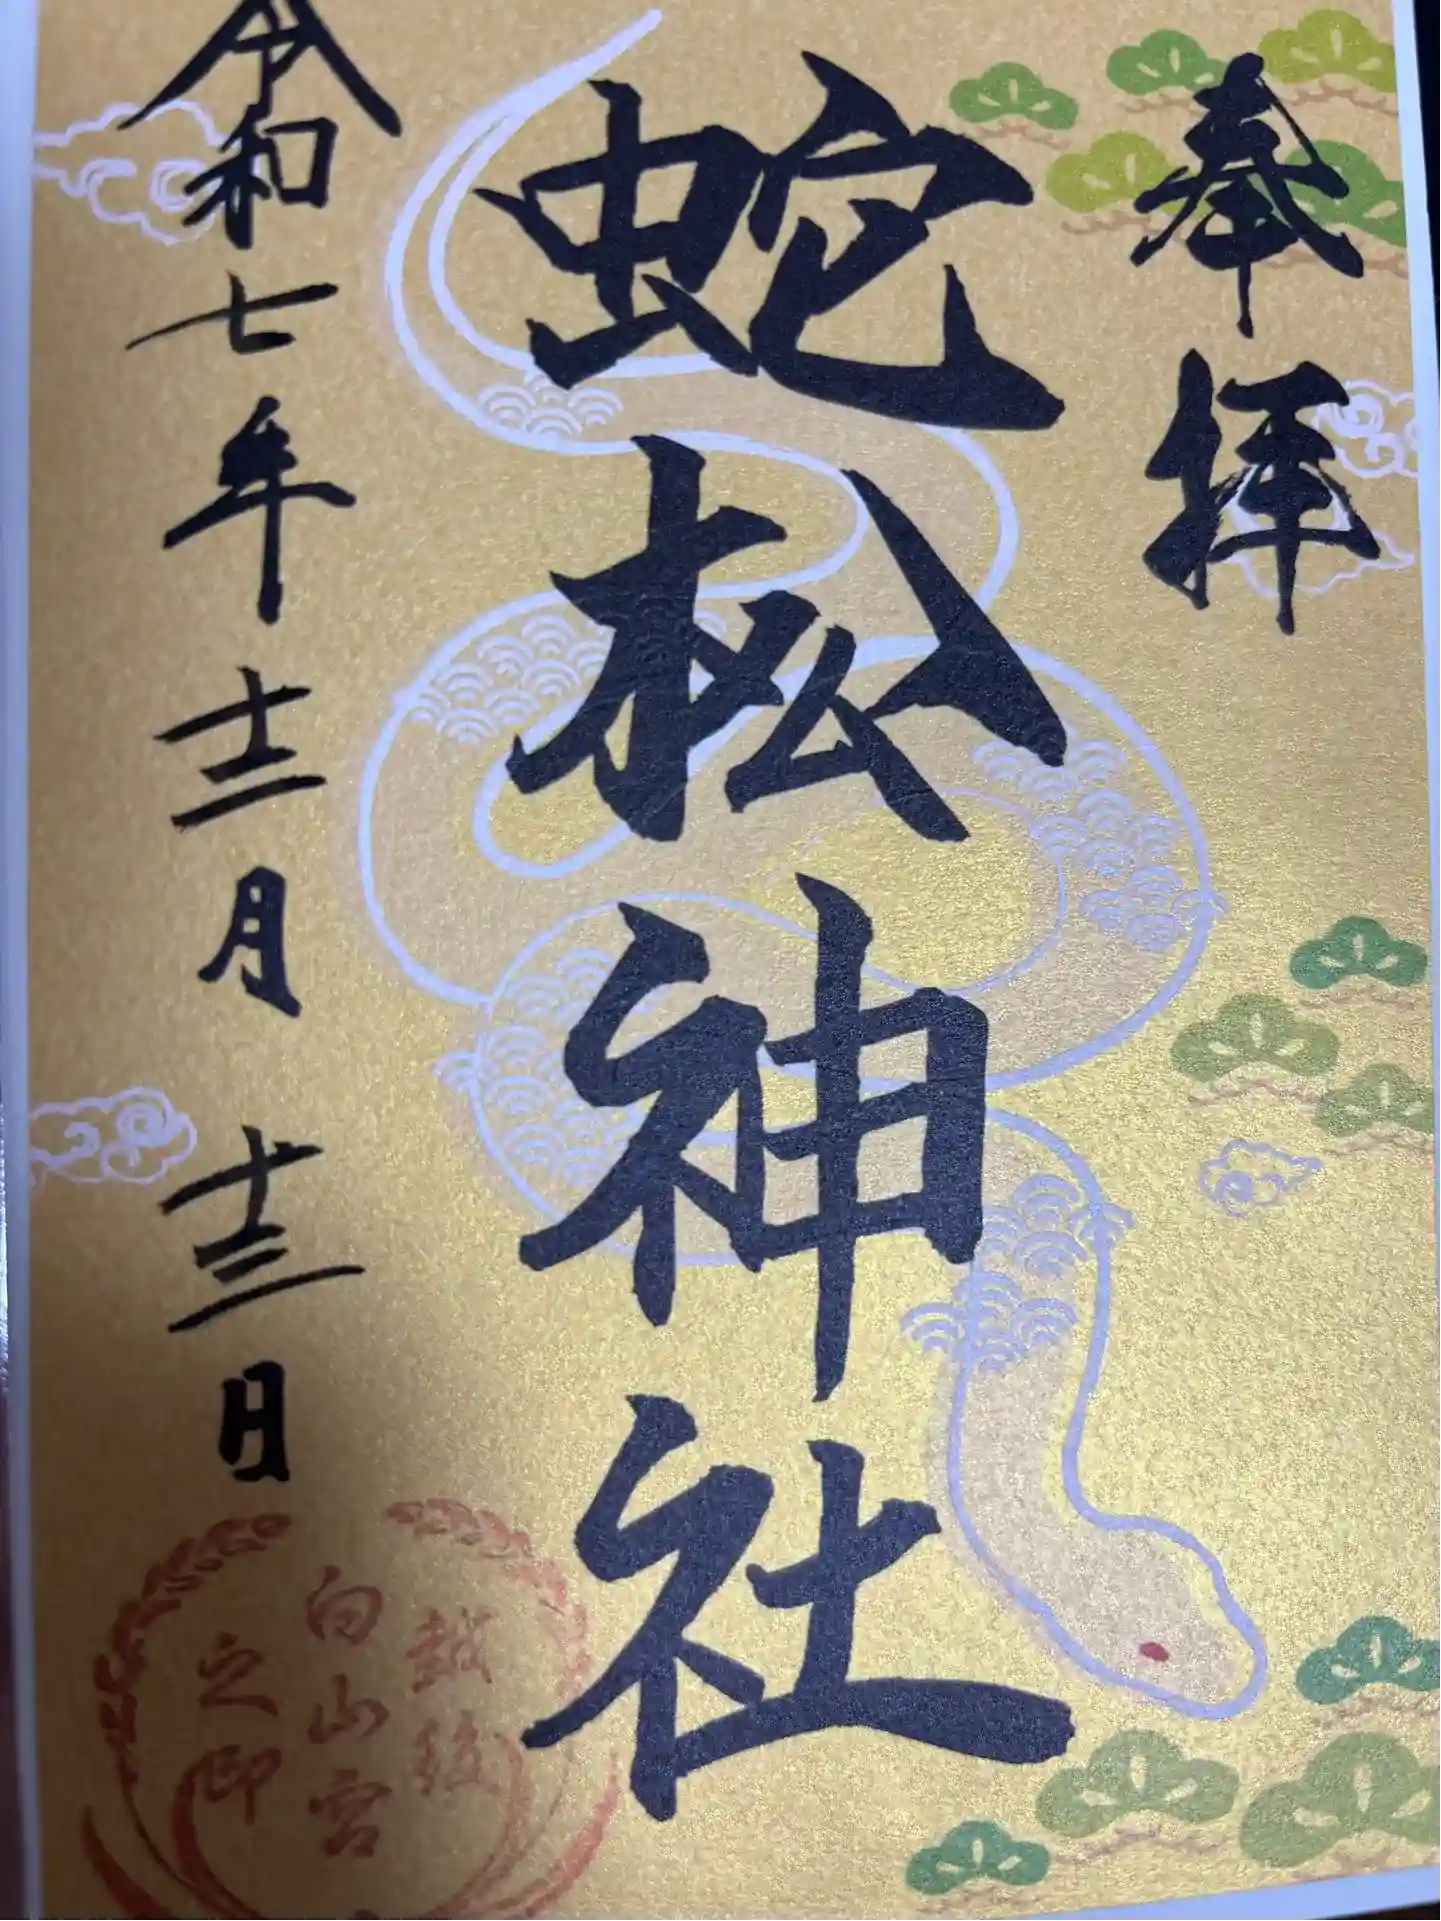 奉拝
蛇松神社
令和七年十二月十三日
越後
白山宮
之印